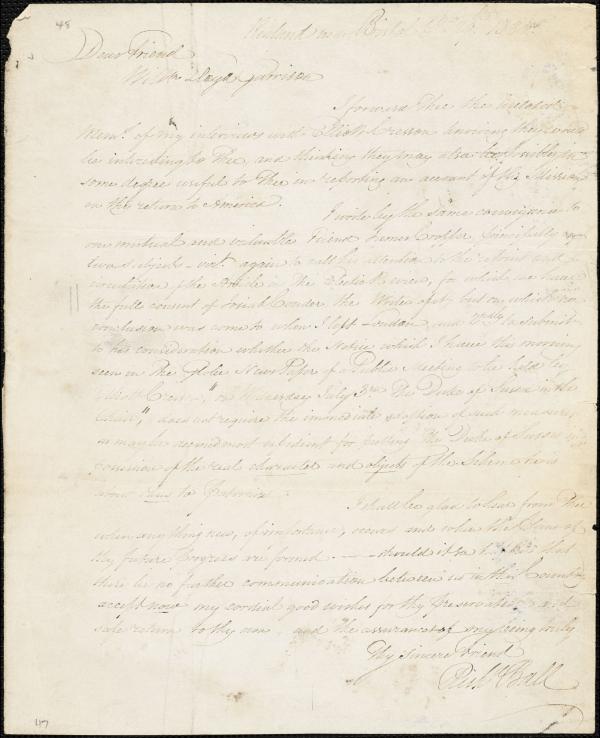 48
Dear Friend
Wm Lloyd Garrison
I forward Thee the
of my interviews with Elliott Cresson knowing they would
be interesting to Thee, and thinking they may also be possibly in
some degree useful to Thee in reporting an account of the Mission
on the return to America.
I write by the same conveyance to
our mutual and valuable Friend James Cropper, principally on
two subjects – viz. again to call his attention to the reprint and
circulation of the Article in the Eclectic Review, for which we have
the full consent of Josiah Conder the Writer of it, but on which no
conclusion was come to when I left London, and 2ndly to submit
to his consideration whether the Notice which I have this morning
seen in the Globe News Paper of a Public Meeting to be held by
Elliott Cresson, "on Wednesday July 3rd The Duke of Sussex in the
Chair," does not require the immediate adoption of such measures
as may be deemed most expedient for putting the Duke of Sussex in
possession of the real character and objects of the Scheme he is
about to patronize.
I shall be glad to hear from Thee
when any thing new, of importance, occurs and when the Plans of
thy future Progress are formed. – should it so happen that
there be no further communication between us in this Country
accept now my cordial good wishes for thy preservation and
safe return to thy own, and the assurance of my being truly
Thy sincere Friend
Richd Ball